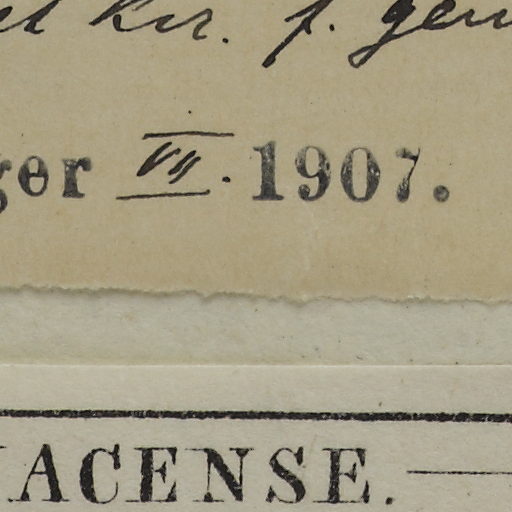 et Kir. f. gen
ger VII. 1907.
ACENSE.